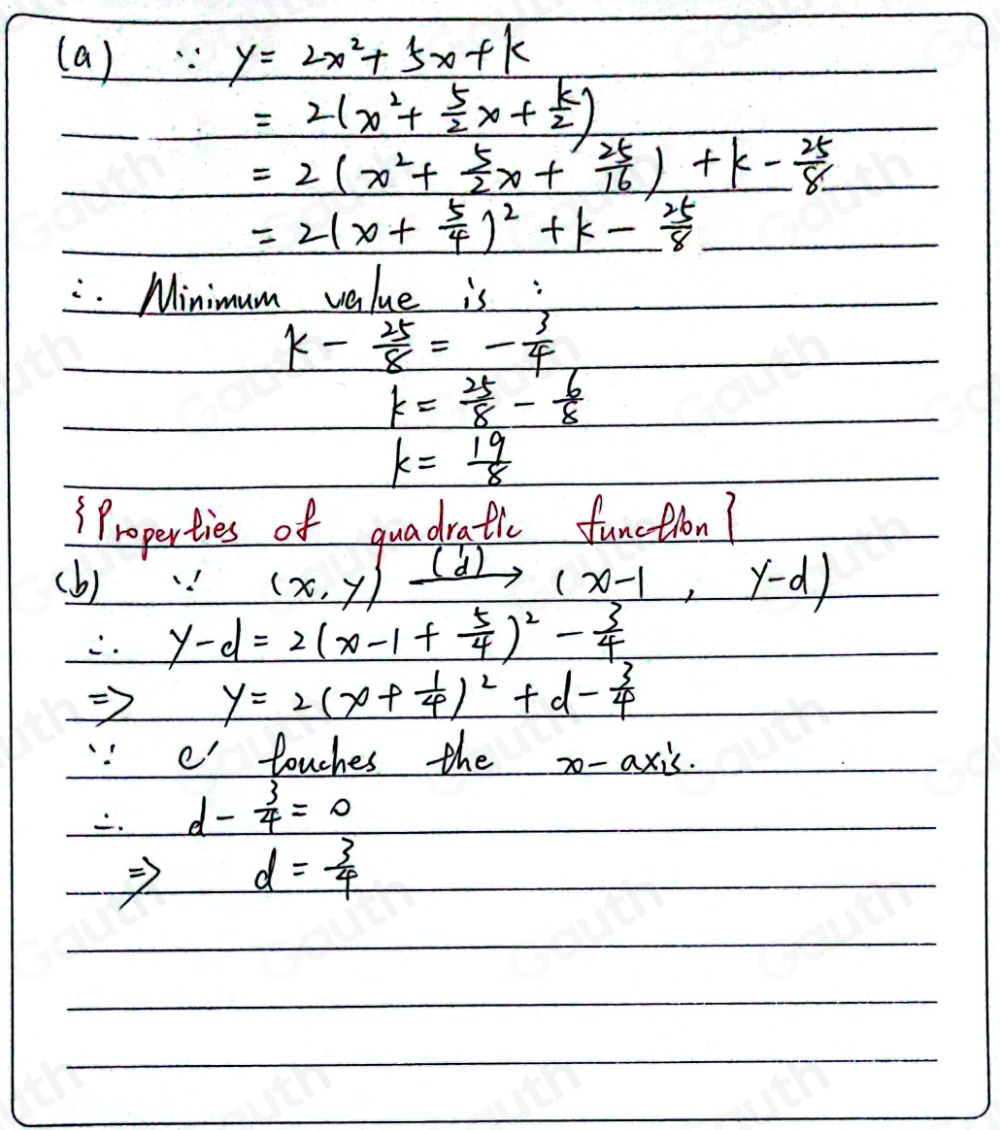 (a) ∵ y = 2x² + 5x + k
= 2(x² + 5/2 x + k/2)
= 2(x² + 5/2 x + 25/16) + k - 25/8
= 2(x + 5/4)² + k - 25/8
∴ Minimum value is :
k - 25/8 = -3/4
k = 25/8 - 6/8
k = 19/8
{Properties of quadratic function}
(b) ∵ (x, y) —(1/d)→ (x-1, y-d)
∴ y-d = 2(x-1 + 5/4)² - 3/4
=> y = 2(x + 1/4)² + d - 3/4
∵ C' touches the x-axis.
∴ d - 3/4 = 0
=> d = 3/4